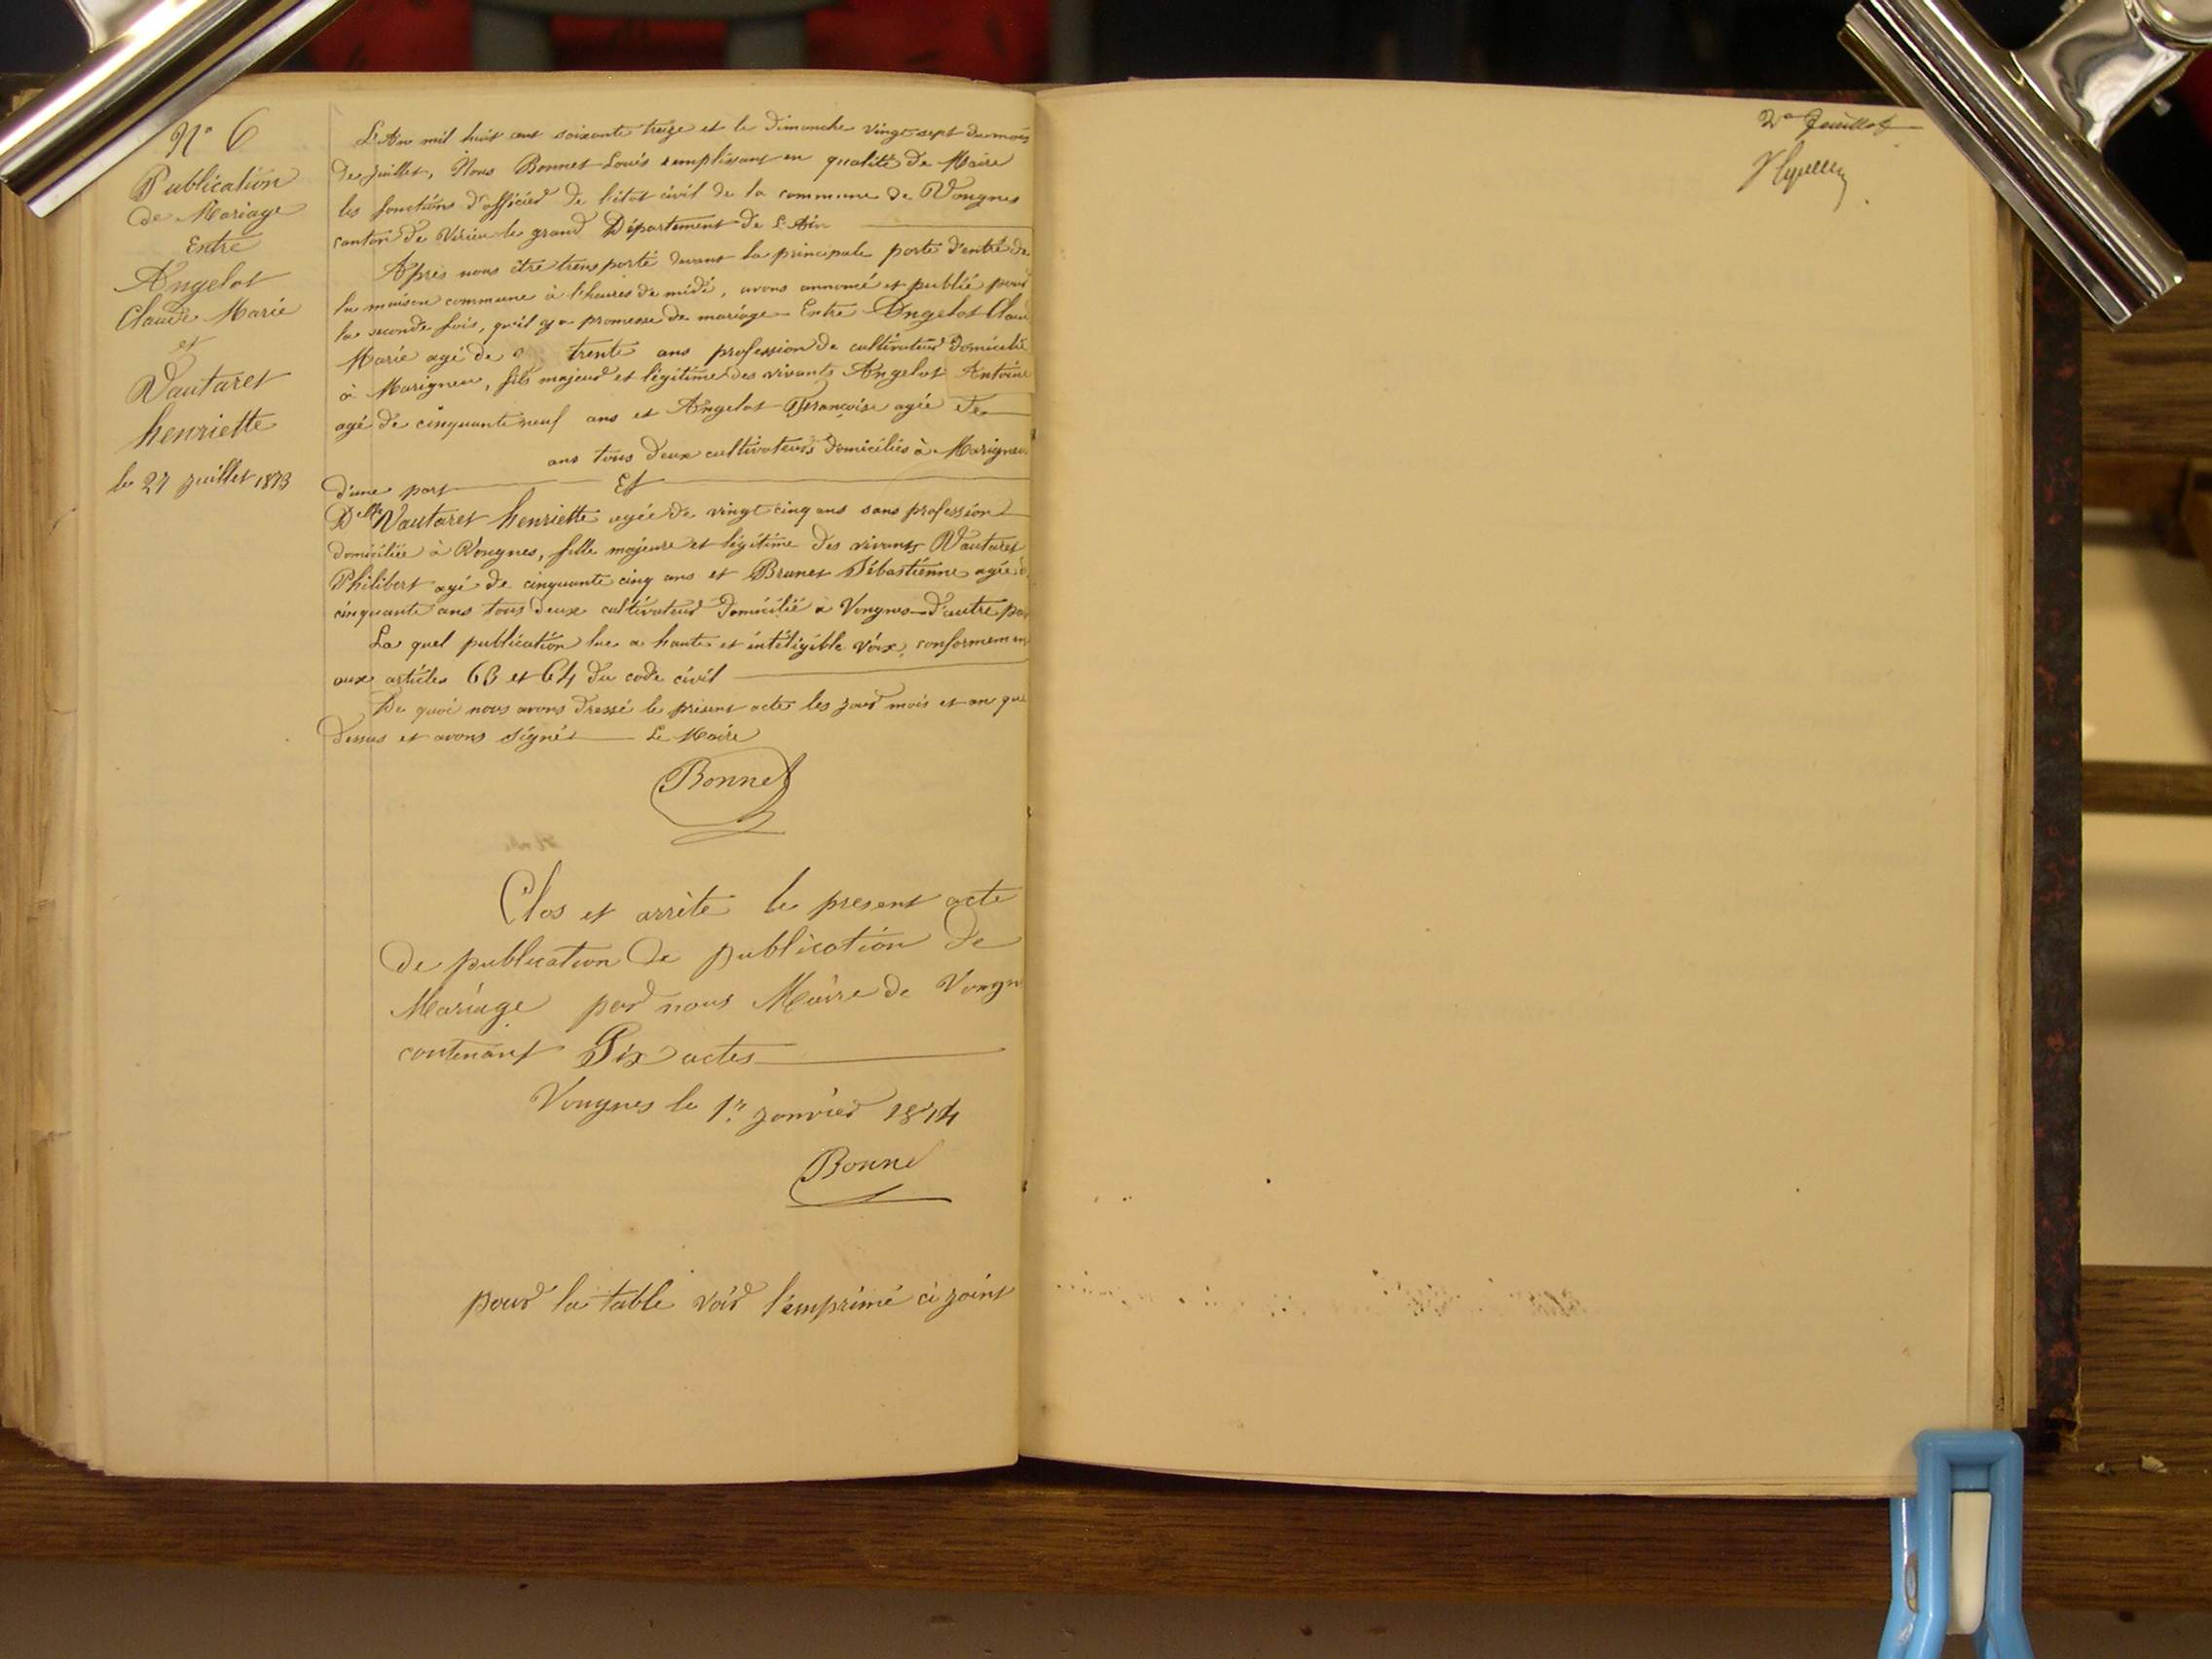 N° 6
Publication
de Mariage
Entre
Angelot
Claude Marie
et
Vautaret
henriette
le 27 juillet 1873
L'An mil huit cent soixante treize et le Dimanche vingt sept du mois
de juillet, Nous Bonnet Louis remplissant en qualité de Maire
les fonctions d'officier de l'état civil de la commune de Vongnes
canton de Virieu le grand Département de L'Ain
Après nous être trensporté devant la principale porte d'entré de
la maison commune à l'heures de midi, avons annoncé et publié pour
la seconde fois, qu'il y a promesse de mariage Entre Angelot Clau
Marie agé de trente ans profession de cultivateur Domicilié
à Marignieu, fils majeur et légitime des vivants Angelot Antoine
agé de cinquante neuf ans et Angelot Françoise agée de
ans tous deux cultivateurs domiciliés à Marignieu
d'une part Et
Delle Vautaret henriette agée de vingt cinq ans sans profession
domiciliée à Vongnes, fille majeure et légitime des vivants Vautaret
Philibert agé de cinquante cinq ans et Brunet Sébastienne agée d
cinquante ans tous deux cultivateur Domicilié a Vongnes d'autre par
La quel publication lue a haute et intéligible voix, conformemen
aux articles 63 et 64 du code civil
De quoi nous avons dressé le présent acte les jour mois et an que
dessus et avons signé Le Maire
Bonnet
Clos et arrêté le present acte
de publication de publication de
Mariage par nous Maire de Vongn
contenant Six actes
Vongnes le 1er janvier 1874
Bonnet
pour la table voir l'emprimé ci joint
2e feuillet